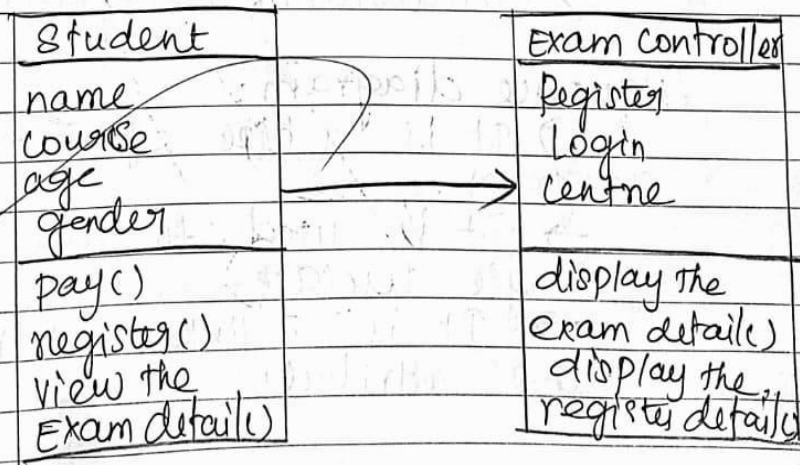 Student
name
course
age
gender
pay()
register()
view the
Exam detail()
Exam controller
Register
Login
centre
display the
exam detail()
display the
register detail()